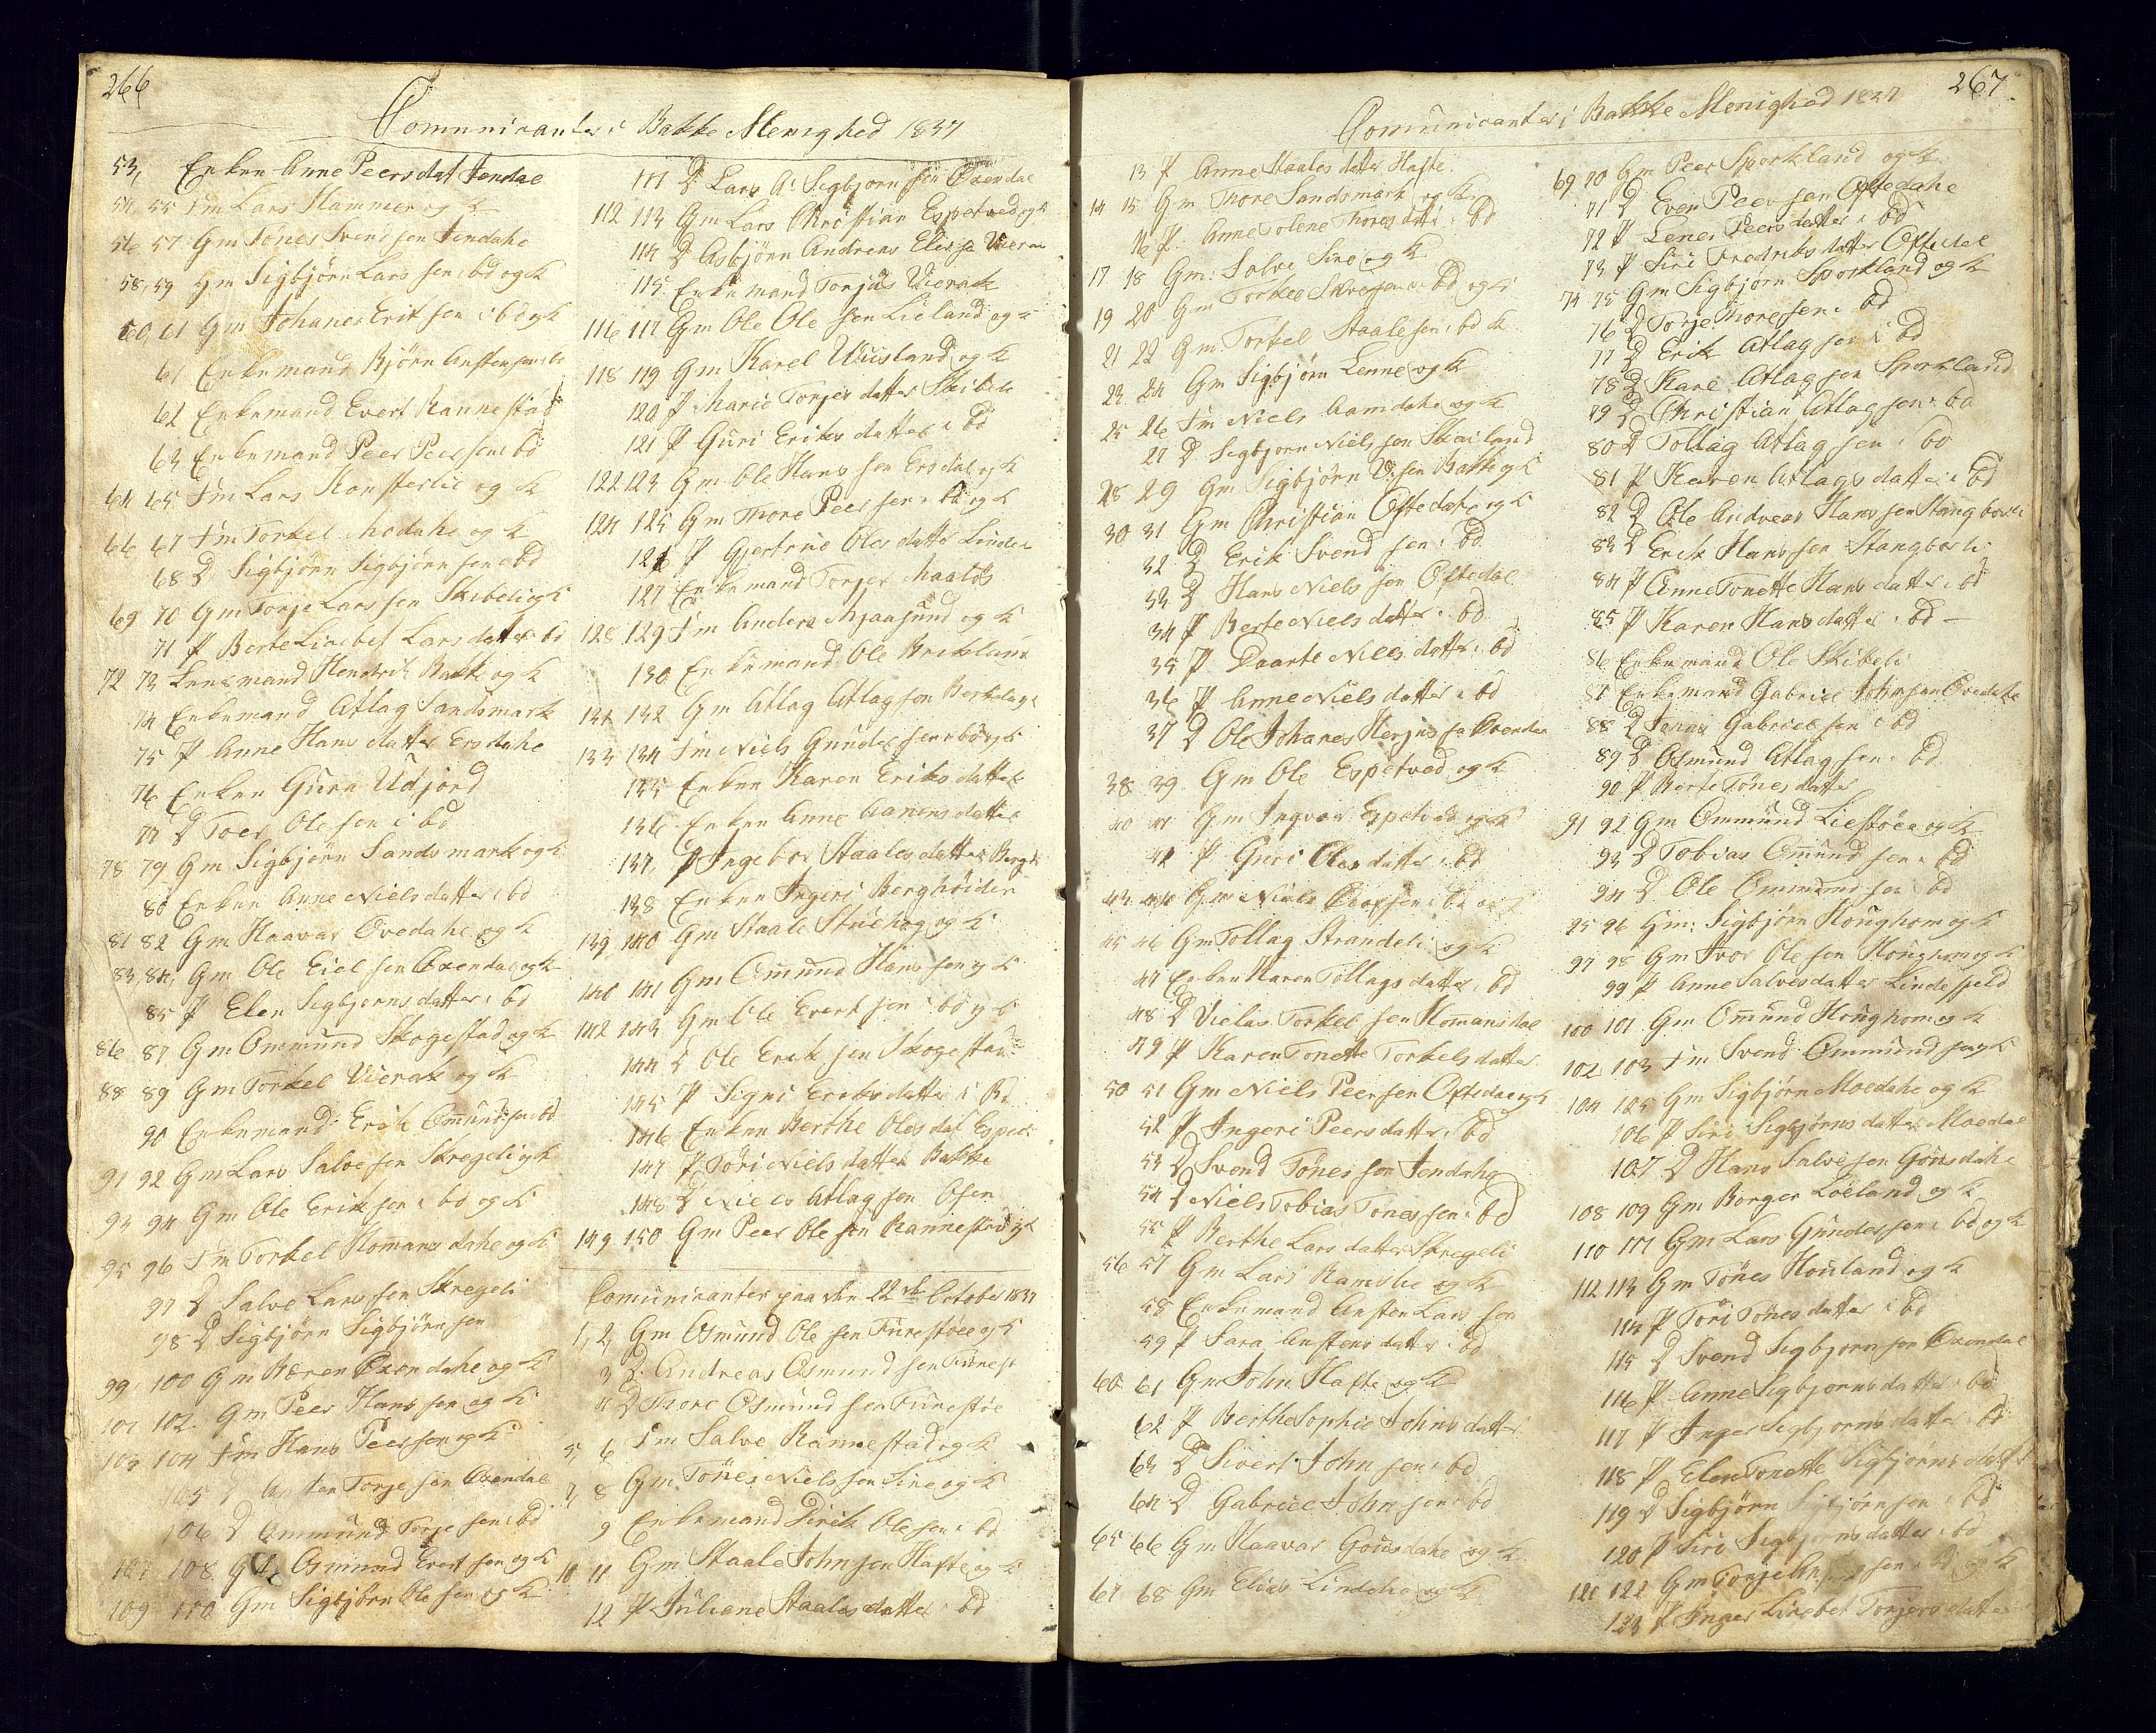 266
Comunicanter i Bakke Menighed 1837
53, Enken Anne Peersdat Jendal
54, 55 Fm Lars Hammer og K
56, 57 Gm Tønes Svend sen Jendahe
58, 59 Gm Sigbjørn Lars sen i bd og K
60, 61 Gm Johanes Erik sen i bd og K
61 Enkemand Bjørn Ansten sen
62 Enkemand Evert Rannestad
63 Enkemand Peer Peer sen i bd
64 65 Fm Lars Konsterlie og K
66 67 Fm Torkel Modahe og K
68 D Sigbjørn Sigbjørn sen i bd
69 70 Gm Torje Lars sen Skibeli og K
71 P Berte Lisebet Lars datter bd
72 73 Lensmand Hendrik Bakke og K
74 Enkemand Atlag Sandsmark
75 P Anne Hans datter Ersdahe
76 Enken Guren Udjord
77 D Toer Ole sen i bd
78 79 Gm Sigbjørn Sandsmark og K
80 Enken Anne Niels datter i bd
81 82 Gm Haavar Ovedahe og K
83, 84, Gm Ole Eiel sen Øxendal og K
85 P Elen Sigbjorns datter i bd
86 87 Gm Ommund Skogestad og K
88 89 Gm Torkel Vierak og K
90 Enkemand Erik Omund sen bd
91 92 Gm Lars Salve sen Skregeli og K
93 94 Gm Ole Erik sen i bd og K
95 96 Fm Torkel Homansdahe og K
97 D Salve Lars sen Skregeli
98 D Sigbjørn Sigbjørn sen
99, 100 Gm Bæren Øxendahe og K
101 102 Gm Peer Hans sen og K
103 104 Fm Hans Peer sen og K
105 D Torje sen Øxendal
106 D Ommund Torje sen i bd
107 108 Gm Osmund Evert sen og K
109 110 Gm Sigbjörn Ole sen og K
111 D Lars A: Sigbjorn sen Øxendal
112 113 Gm Lars Christian Espetved og K
114 D Asbjörn Andreas Elies sen Vierak
115 Enkemand Torjus Vierak
116 117 Gm Ole Ole sen Lieland og K
118 119 Gm Karel Uuusland og K
120 P Marie Torjes datter Skibeli
121 P Guri Eriks datter i bd
122 123 Gm Ole Hans sen Ersdal og K
124 125 Gm Thore Peer sen i bd og K
126 P Gjertrue Oles datter Linde
127 Enkemand Torjer Maaløs
128 129 Fm Anders Mjaasund og K
130 Enkemand Ole Birkeland
131 132 Gm Atlag Atlag sen
133 134 Fm Niels Gunder sen i bd og K
135 Enken Karen Eriks datter
136 Enken Anne Aanens datter
137, P Ingebor Staales datter Berghe
138 Enken Ingeri Berghöiden
139 140 Gm Staale Stuehøg og K
140 141 Gm Omund Hans sen og K
142 143 Gm Ole Evert sen i bd og K
144 D Ole Erik sen Skogestad
145 P Signi Eriks datter i bd
146 Enken Berthe Oles dat Espet
147 P Töri Niels datter Bakke
148 D Niels Atlag sen Osen
149 150 Gm Peer Ole sen Rannestad og K
Comunicanter paa den 22de October 1837
1, 2, Gm Osmund Ole sen Tuestøe og K
3 D Andreas Osmund sen
4 D Thore Osmund sen
5, 6 Fm Salve Rannestad og K
7, 8 Gm Tönes Niels sen Sire og K
9 Enkemand Dirik Ole sen i bd
10 11 Gm Staale John sen Hafte og K
12 P Juliane Staales datter i bd
267
Comunicanter i Bakke Menighed 1837
13 P Anne Staales datter Hafte
14 15 Gm Thore Sandsmark og K
16 P Anne Tolene Thores datter i bd
17 18 Gm: Salve Sire og K
19 20 Gm Torkel i bd og K
21 22 Gm Torkel Staale sen i bd K
23 24 Gm Sigbjørn Lenne og K
25 26 Fm Niels Aamdahe og K
27 D Segbjorn Niels sen Skailand
28 29 Gm Sigbjørn O: sen Bakke og K
30 31 Gm Christian Oftedahe og K
32 D Erik Svend sen i bd
33 D Hans Niels sen Oftedal
34 P Berte Niels datter i bd
35 P Daarte Niels datter i bd
36 P Anne Niels datter i bd
37 D Ole Johanes Herjus sen Øxendal
38 39 Gm Ole Espetved og K
40 41 Gm Ingvar Espetved og K
42 P Guri Oles datter i bd
43 44 Gm Niels sen i bd og K
45 46 Gm Tollag Strandeli og K
47 Enken Karen Tollags datter i bd
48 D Vielas Torkel sen Homansdal
49 P Karen Tonette Torkels datter
50 51 Gm Niels Peer sen Oftedal og K
52 P Ingeri Peers datter i bd
53 D Svend Tönes sen Jendahe
54 D Niels Tobias Tönes sen i bd
55 P Berthe Lars datter Skregeli
56 57 Gm Lars Ramslie og K
58 Enkemand Ansten Lars sen
59 P Sara Anstens datter i bd
60 61 Gm John Hafte og K
62 P Berthe Sophie Johns datter
63 D Sivert John sen i bd
64 D Gabriel John sen i bd
65 66 Gm Haavar Gousdahe og K
67 68 Gm Elias Lindeha og K
69 70 Gm Peer Sporkland og K
71 D Even Peer sen Oftedahe
72 P Lene Peers datter i bd
73 P Siri Fredriks datter Oftedal
74 75 Gm Sigbjörn Sporkland og K
76 D Torje Thore sen i bd
77 D Erik Atlag sen i bd
78 D Kare Atlag sen Sporkland
79 D Christian Atlag sen i bd
80 D Tollag Atlag sen i bd
81 P Karen Atlags datter i bd
82 D Ole Andreas Hans sen Stangborli
83 D Erik Hans sen Stangborli
84 P Anne Tonette Hans datter i bd
85 P Karen Hans datter i bd
86 Enkemand Ole Skibeli
87 Enkemand Gabriel John sen Ovedahe
88 D Jonas Gabriel sen i bd
89 D Osmund Atlag sen i bd
90 P Berte Tönes datter
91 92 Gm Ommund Liestøen og K
93 D Tobias Omund sen i bd
94 D Ole Ommund sen i bd
95 96 Gm: Sigbjørn Houghom og K
97 98 Gm Ivor Ole sen Houghom og K
99 P Anne Salves datter Lindefjeld
100 101 Gm Omund Houghom og K
102 103 Fm Svend Ommund sen og K
104 105 Gm Sigbjørn Moedahe og K
106 P Siri Sigbjørns datter Moedal
107 D Hans Salve sen Gousdahe
108 109 Gm Borger Loeland og K
110 111 Gm Lars Gunder sen i bd og K
112 113 Gm Tönes Houland og K
114 P Töri Tönes datter i bd
115 D Svend Sigbjorn sen Øxendal
116 P Anne Sigbjorns datter i bd
117 P Inger Sigbjorns datter i bd
118 P Elen Tonette Sigbjørns datter
119 D Sigbjörn Sigbjörn sen i bd
120 P Siri Sigbjorns datter i bd
121 122 Gm Torje sen i bd og K
123 P Inger Lisebet Torjers datter